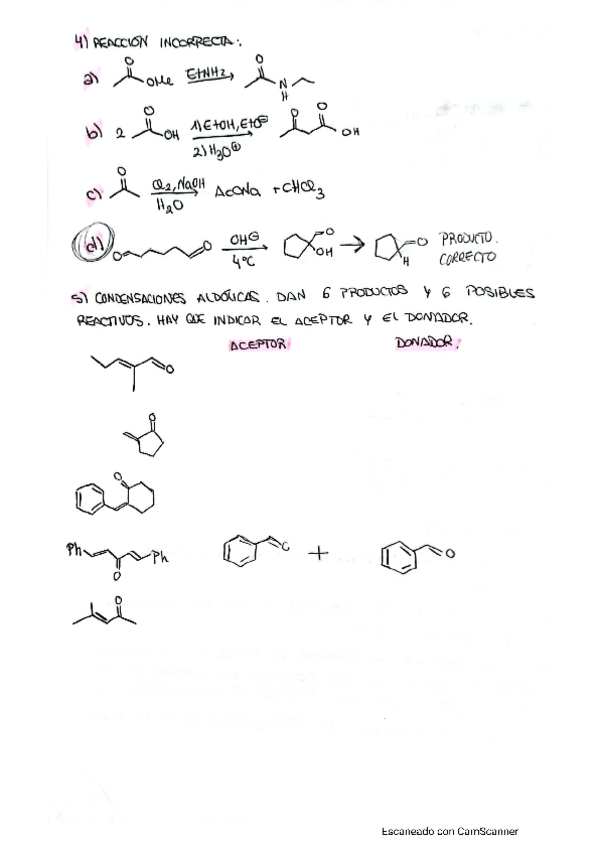 4) REACCIÓN INCORRECTA:
a) O OMe EtNH2 O N H
b) 2 O OH 1) EtOH, EtO⊖ 2) H3O⊕ O O OH
c) O Cl2, NaOH H2O AcONa + CHCl3
d) O O OH⊖ 4°C O OH O H PRODUCTO.
CORRECTO
5) CONDENSACIONES ALDÓLICAS. DAN 6 PRODUCTOS Y 6 POSIBLES
REACTIVOS. HAY QUE INDICAR EL ACEPTOR Y EL DONADOR.
ACEPTOR DONADOR:
O
O
O
Ph O Ph O + O
O
Escaneado con CamScanner